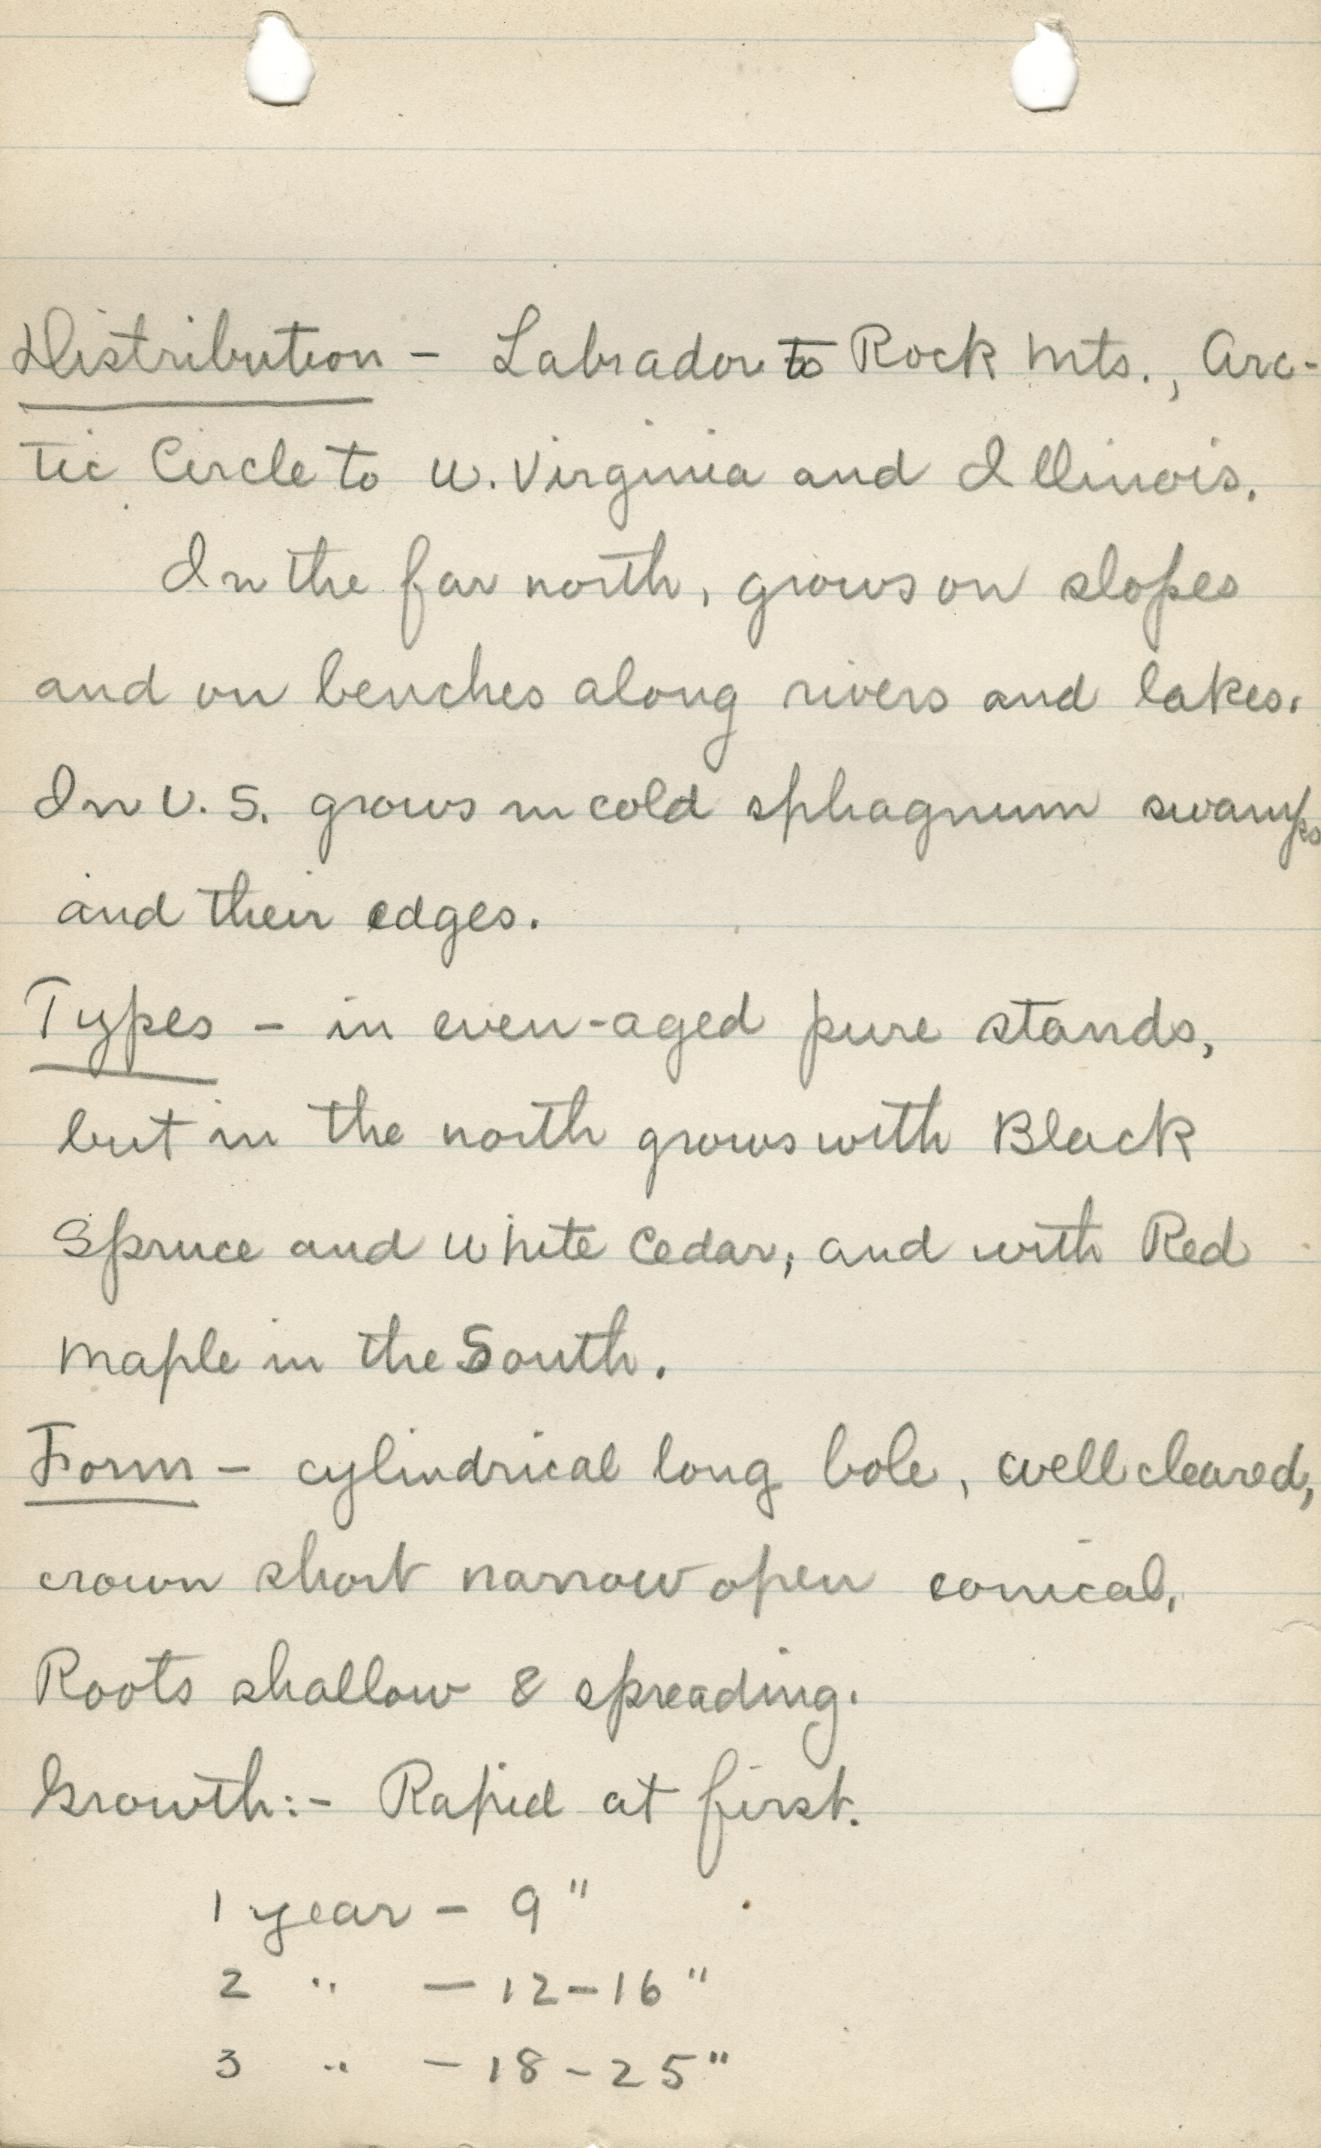 Distribution - Labrador to Rock Mts., Arc-
tic Circle to W. Virginia and Illinois.
In the far north, grows on slopes
and on benches along rivers and lakes.
In U. S. grows in cold sphagnum swamps
and their edges.
Types - in even-aged pure stands,
but in the north grows with Black
Spruce and White Cedar, and with Red
Maple in the South.
Form - cylindrical long bole, well cleared,
crown short narrow open conical,
Roots shallow & spreading.
Growth:- Rapid at first.
1 year - 9"
2 " - 12-16"
3 " - 18-25"